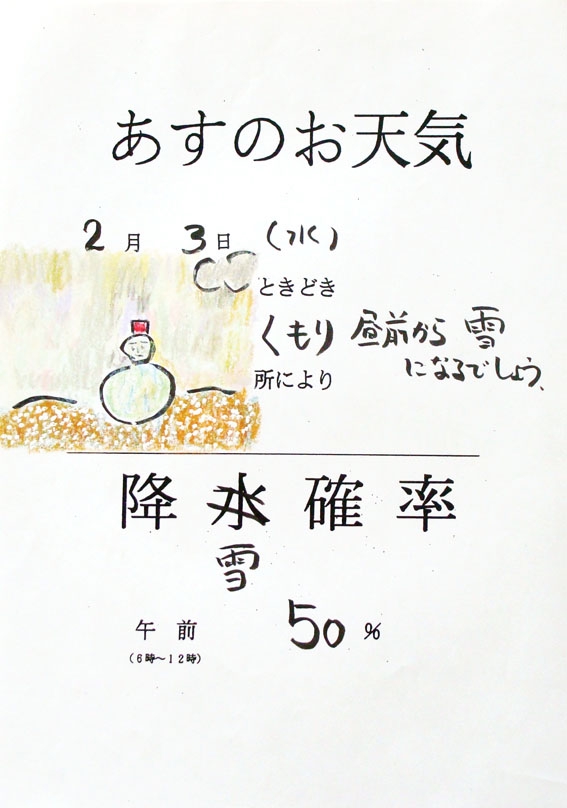 あすのお天気
2月 3日 (水)
ときどき
くもり 昼前から 雪
になるでしょう、
所により
降水確率
雪
午前 50%
(6時〜12時)